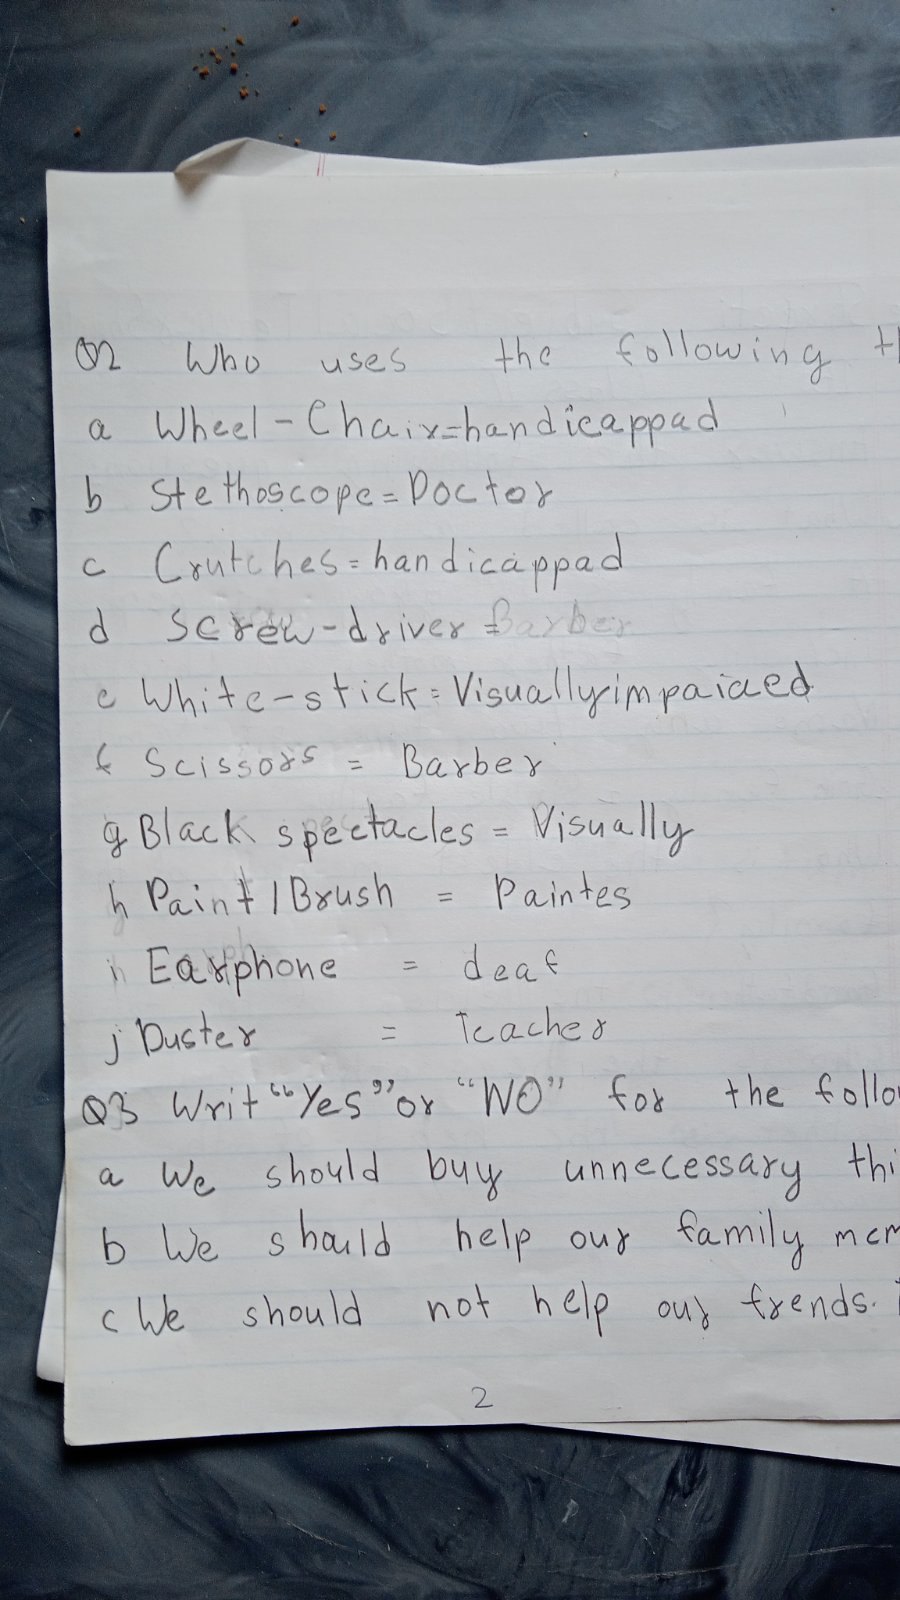 Q2 Who uses the following th
a Wheel-Chair=handicappad
b Stethoscope=Doctor
c Crutches=handicappad
d Screw-driver=Barber
e White-stick=Visuallyimpaiaed
f Scissors = Barber
g Black spectacles = Visually
h Paint/Brush = Paintes
i Earphone = deaf
j Duster = Teacher
Q3 Writ "Yes" or "NO" for the follo
a We should buy unnecessary thi
b We should help our family mem
c We should not help our frends.
2